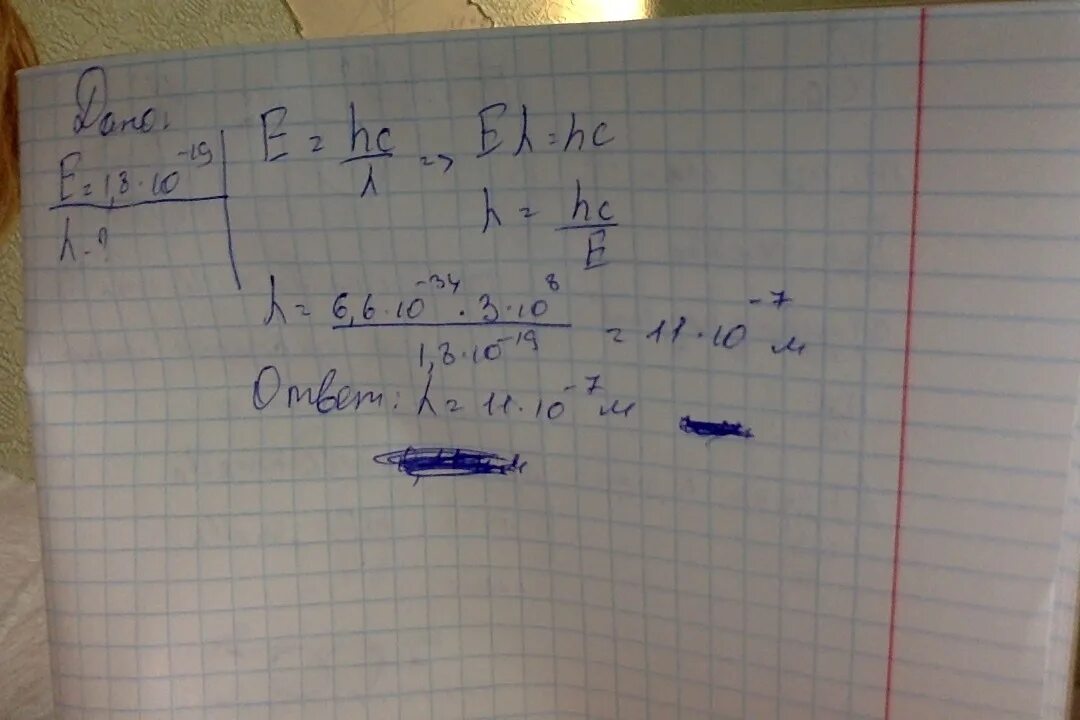 Дано:
E = 1,8 · 10⁻¹⁹
λ - ?
E = hc/λ => Eλ = hc
λ = hc/E
λ = 6,6 · 10⁻³⁴ · 3 · 10⁸ / 1,8 · 10⁻¹⁹ = 11 · 10⁻⁷ м
Ответ: λ = 11 · 10⁻⁷ м